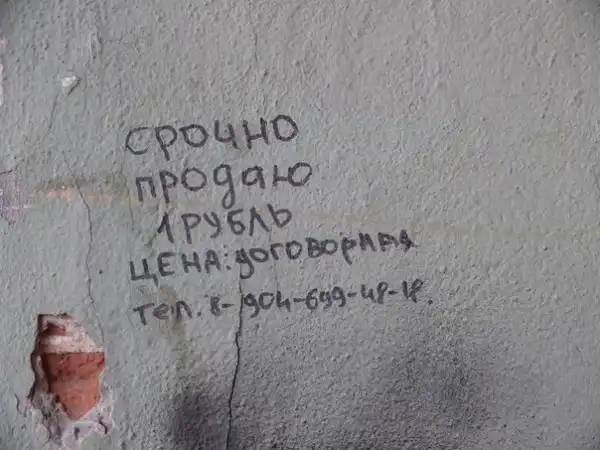 срочно
продаю
1 рубль
цена: договорная
тел. 8-904-699-48-18.